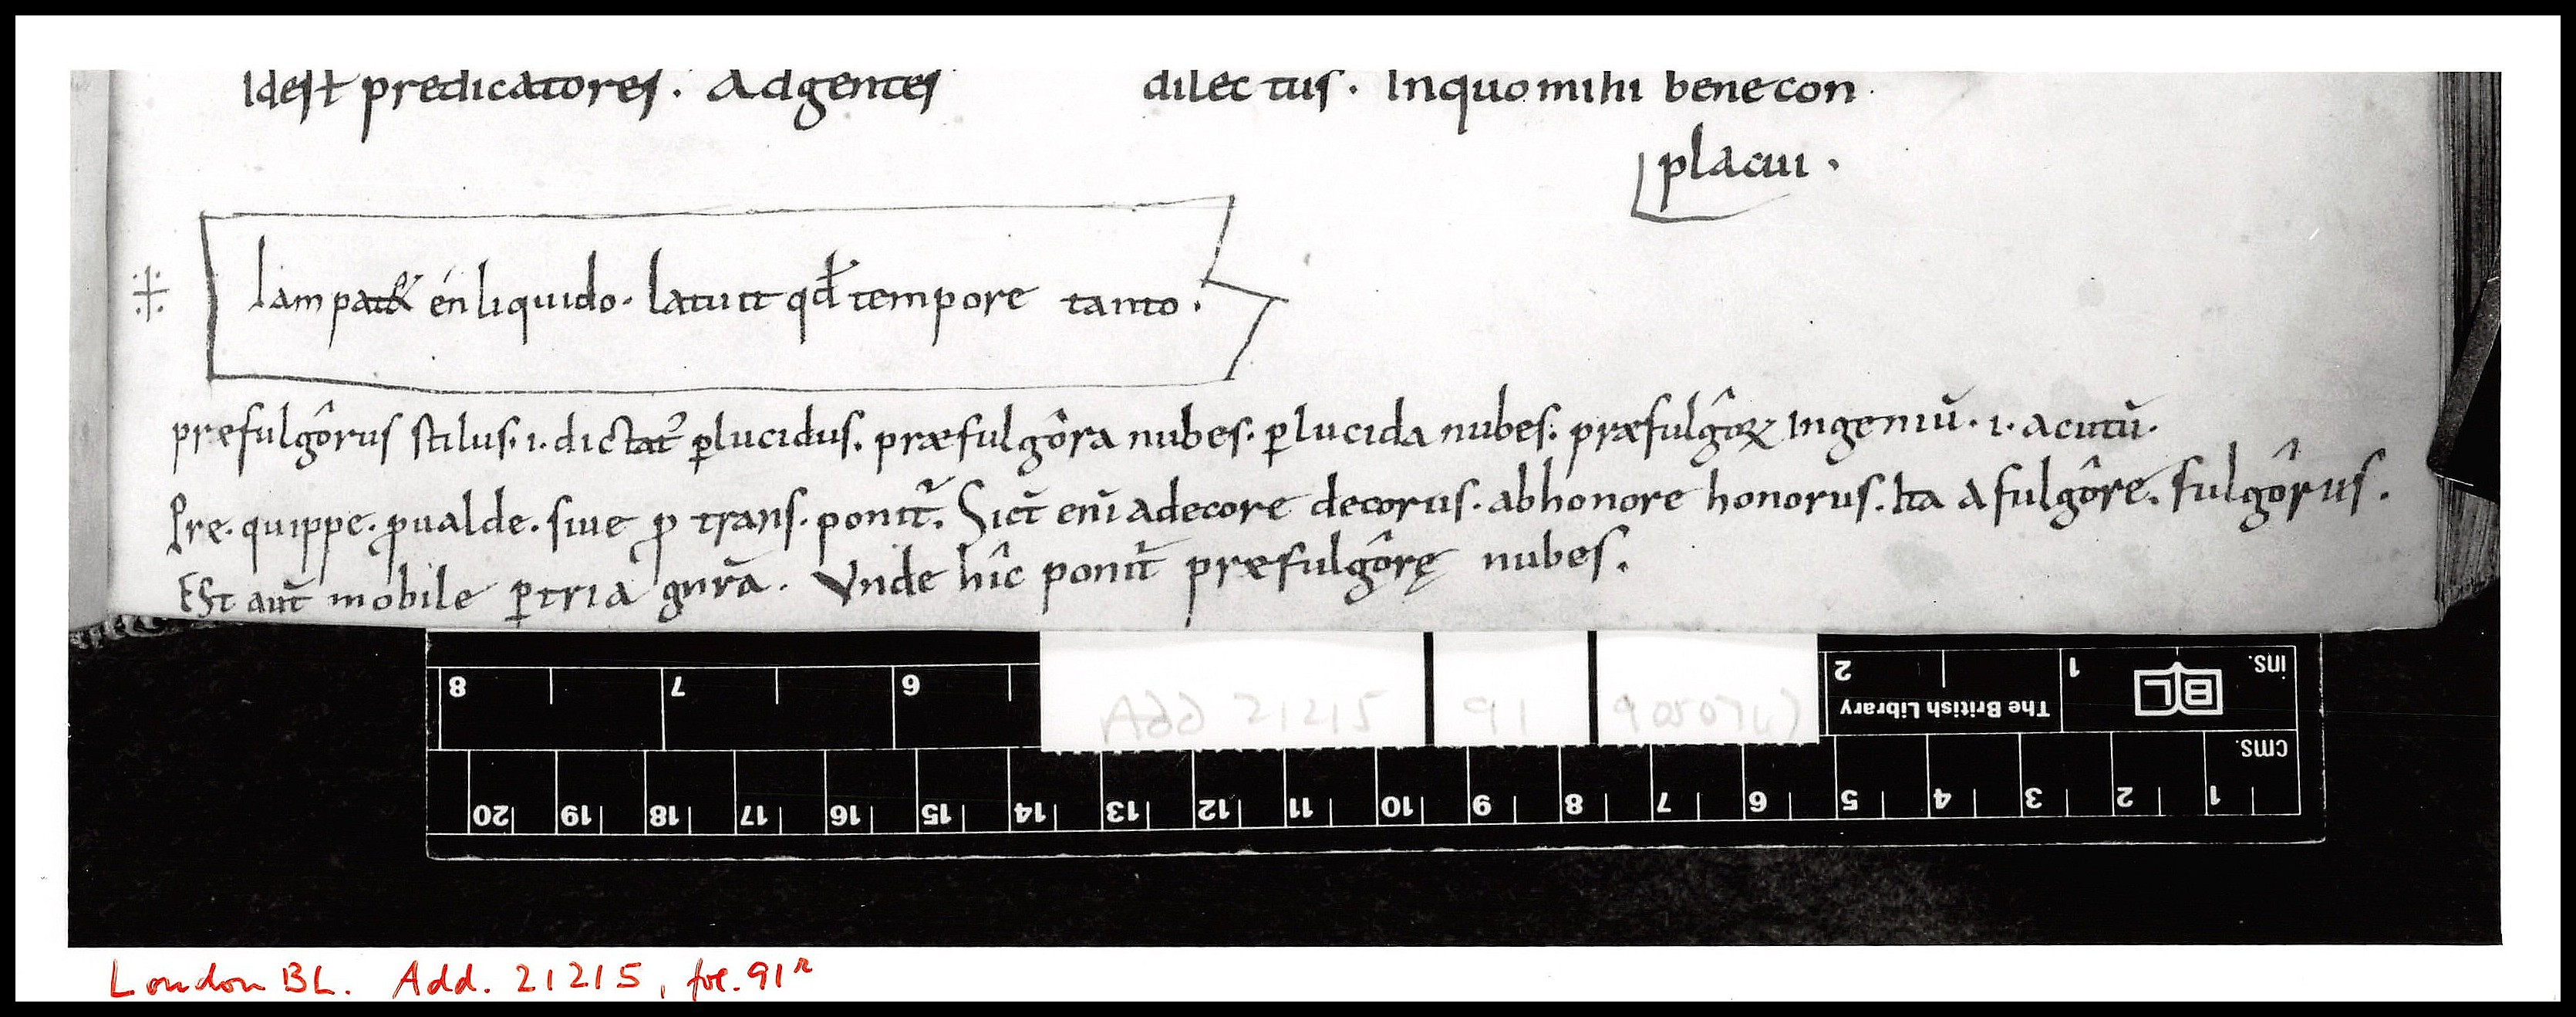 Idest predicatores. Adgentes
dilectus. Inquo mihi bene con
placui.
Iam pat& én liquido. latuit qđ tempore tanto.
prefulgôrus stilus. i. dictat᷒ ꝑlucidus. præfulgôra nubes. ꝑlucida nubes. præfulgôꝝ ingeniū. i. acutū.
Pre. quippe. ꝓualde. siue ꝓ trans. ponit᷒. Sic̄ eni adecore decorus. abhonore honorus. Ita afulgôre. fulgôrus.
Est aut̄ mobile ꝑtria gn̄ra. Vnde hîc ponit᷒ prefulgôrę nubes.
8 7 6 2 1 ins.
The British Library
BL
Add 21215 91
cms.
20 19 18 17 16 15 14 13 12 11 10 9 8 7 6 5 4 3 2 1
London BL. Add. 21215, fol. 91r